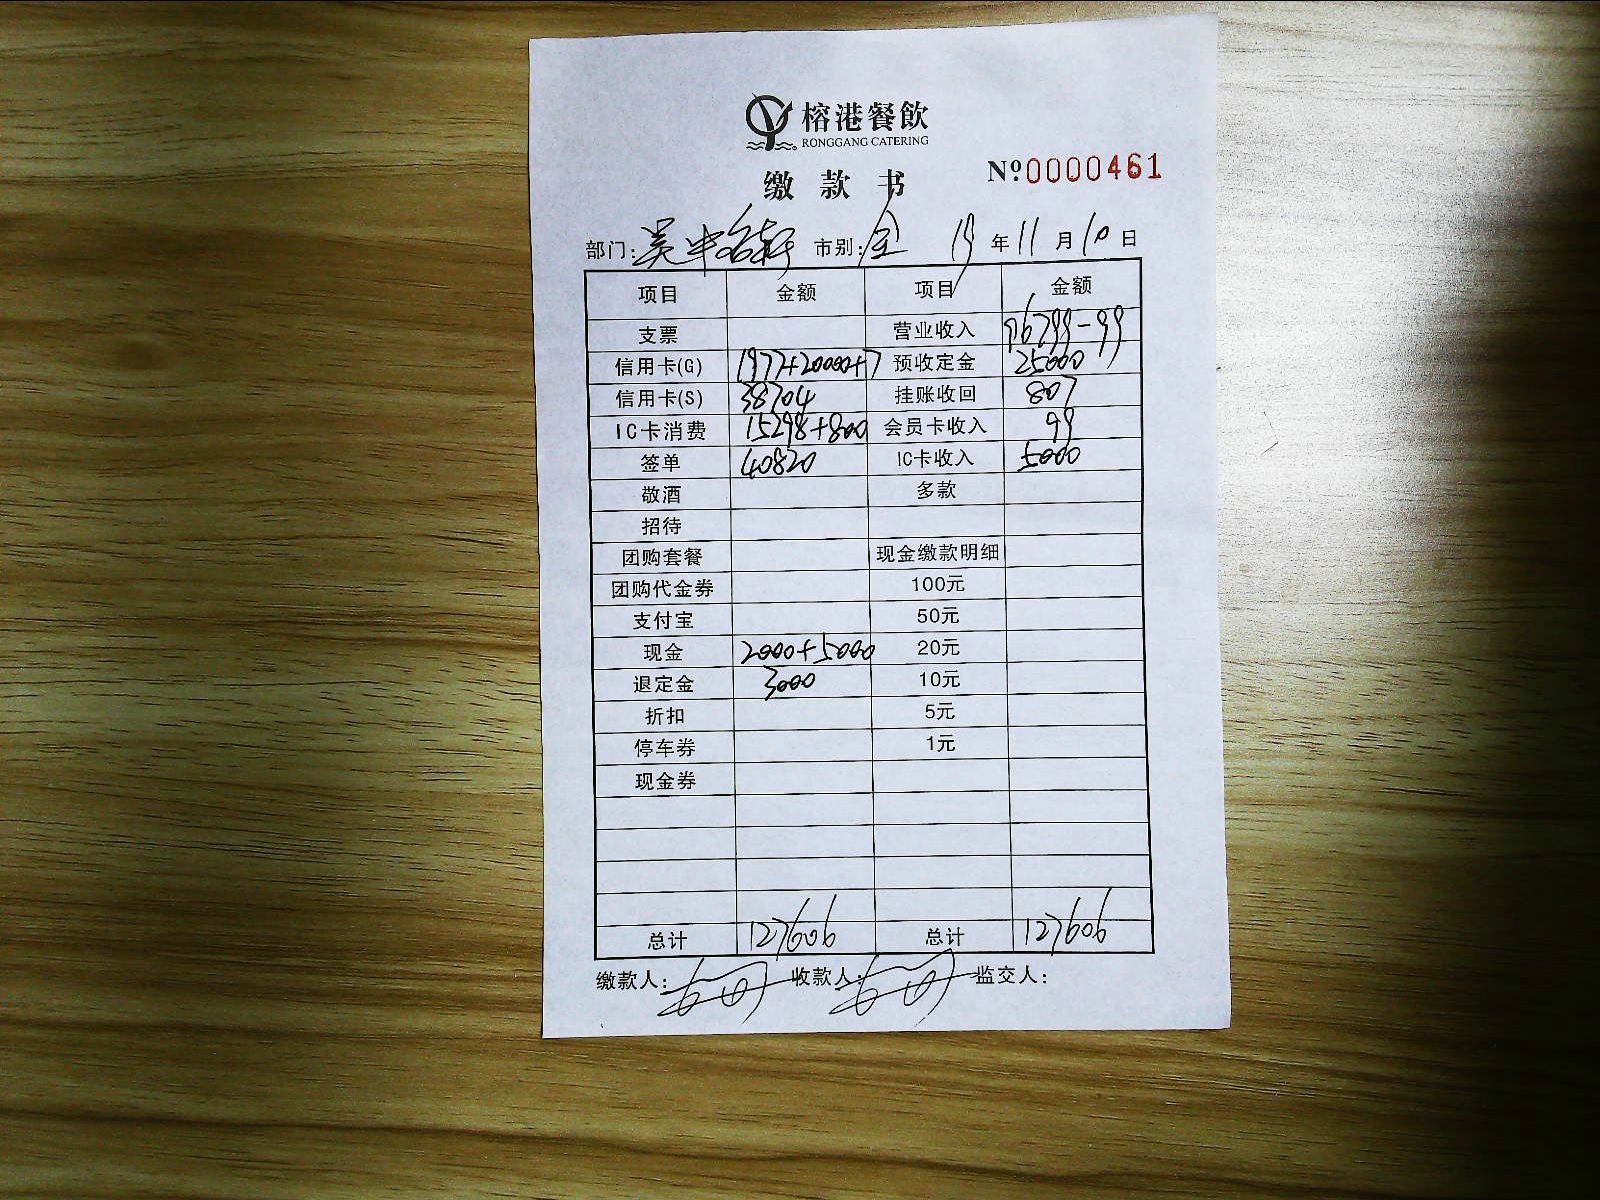 榕港餐飲
RONGGANG CATERING
缴款书 №0000461
部门:吴中名轩 市别:全 19年11月10日
项目 金额 项目 金额
支票 营业收入 96799-99
信用卡(G) 1977+20000+7 预收定金 25000
信用卡(S) 38704 挂账收回 807
IC卡消费 15298+800 会员卡收入 99
签单 40820 IC卡收入 5000
敬酒 多款
招待
团购套餐 现金缴款明细
团购代金券 100元
支付宝 50元
现金 2000+5000 20元
退定金 3000 10元
折扣 5元
停车券 1元
现金券
总计 127606 总计 127606
缴款人: 收款人: 监交人: